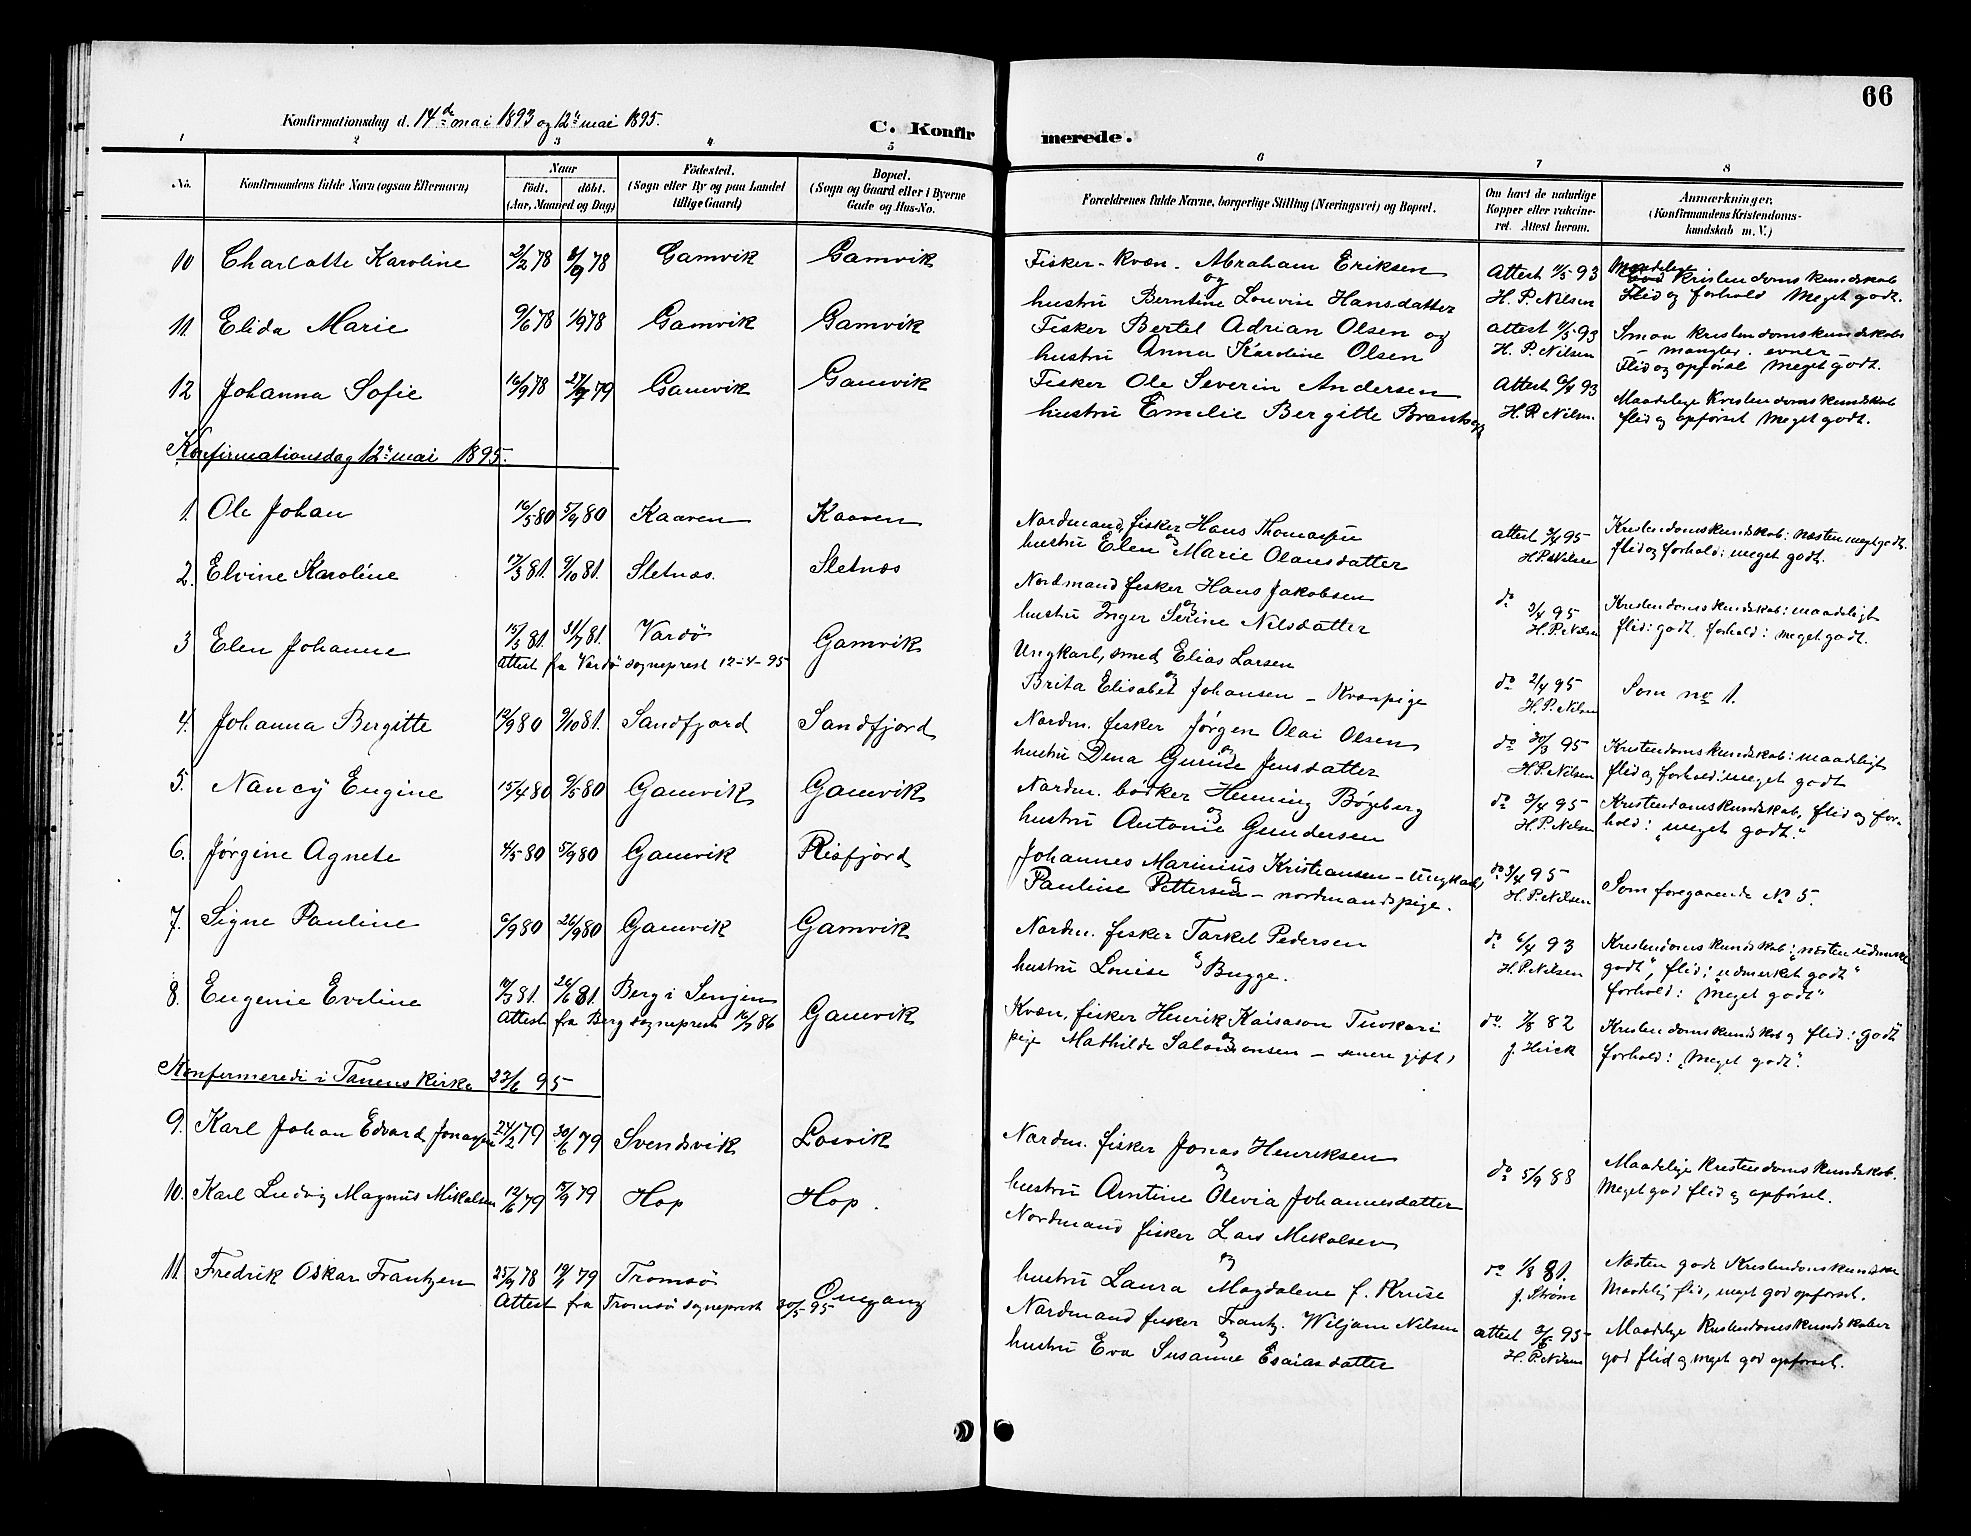 66
Konfirmationsdag d. 14de mai 1893 og 12te mai 1895.
C. Konfirmerede.
1 2 3 4 5 6 7 8
No. Konfirmandens fulde Navn (ogsaa Efternavn) Naar födt. döbt. (Aar, Maaned og Dag)
Födested. (Sogn eller By og paa Landet tillige Gaard)
Bopæl. (Sogn og Gaard eller i Byerne Gade og Hus-No.
Forældrenes fulde Navne, borgerlige Stilling (Næringsvei) og Bopæl.
Om havt de naturlige Kopper eller vakcineret. Attest herom.
Anmærkninger, (Konfirmandens Kristendomskundskab m. V.)
10 Charlotte Karoline 2/2 78 8/9 78 Gamvik Gamvik
Fisker - Kvæn - Abraham Eriksen og
hustru Berntine Lovvin Hansdatter
Attest 11/5 93 H. P. Nilsen
Maadelige Kristendomskundskab
Flid og forhold Meget godt.
11 Elida Marie 9/6 78 1/9 78 Gamvik Gamvik
Fisker Bertel Adrian Olsen og
hustru Anna Karoline Olsen
attest 11/5 93 H. P. Nilsen
Smaa Kristendomskundskab
- mangler evner -
Flid og opførsel Meget godt.
12 Johanna Sofie 16/9 78 27/7 79 Gamvik Gamvik
Fisker Ole Severin Andersen
hustru Emelie Bergitte
Attest 6/4 93 H. P. Nilsen
Maadelige Kristendomskundskab
flid og opførsel Meget godt.
Konfirmationsdag 12te mai 1895.
1. Ole Johan 16/5 80 5/9 80 Kaaven Kaaven
Nordmand, fisker Hans Thomassen
og
hustru Elen Marie Olausdatter
attest 3/4 95 H. P. Nilsen
Kristendomskundskab: næsten meget godt.
flid og forhold: meget godt.
2. Elvine Karoline 17/3 81. 9/10 81. Sletnæs. Sletnæs
Nordmand fisker Hans Jakobsen
og
hustru Inger Serine Nilsdatter
do 3/4 95 H. P. Nilsen
Kristendomskundskab: maadeligt
flid: godt, forhold: meget godt.
3 Elen Johanne 15/3 81. 31/7 81. Vardö Gamvik
Attest fra Vardö sogneprest 12-4-95
Ungkarl, smed, Elias Larsen
og
Brita Elisabet Johansen - Kvænpige
do 2/4 95 H. P. Nilsen
Som no 1.
4. Johanna Bergitte 12/9 80 9/10 81. Sandfjord Sandfjord
Nordm. fisker Jørgen Olai Olsen
og
hustru Dina Jensdatter
do 30/3 95 H. P. Nilsen
Kristendomskundskab: maadeligt
flid og forhold: meget godt
5. Nancy Eugine 15/4 80 9/5 80 Gamvik Gamvik
Nordm. Henning Bøgeberg
og
hustru Antonie Gundersen
do 3/4 95 H. P. Nilsen
Kristendomskundskab, flid og forhold: "meget godt".
6. Jørgine Agnete 4/5 80 5/9 80 Gamvik Risfjord
Johannes Marinius Kristiansen - Ungkarl,
og
Pauline Pettersen - nordmandspige.
do 3/4 95 H. P. Nilsen
Som foregaaende No 5.
7. Signe Pauline 6/9 80 26/9 80 Gamvik Gamvik
Nordm. fisker Tarkel Pedersen
og
hustru Louise Bugge.
do 6/4 93 H. P. Nilsen
Kristendomskundskab: "næsten udmerket
godt", flid: "udmerket godt"
forhold: "Meget godt"
8. Eugenie Eveline 26/6 81. Berg i Senjen Gamvik
Attest fra Berg sogneprest 16/7 86
Kvæn, fisker Henrik Kaisason Tuvkari
og
pige Mathilde Salomonsen - senere gift,
do 7/8 82
Kristendomskundskab og flid: "godt"
forhold: "Meget godt".
Konfermerede i Tanens Kirke 23/6 95
9. Karl Johan Edvard Jonassen 24/2 79 30/6 79 Svendsvik Losvik
Nordm. fisker Jonas Henriksen
og
hustru Olevia Johannesdatter
do 5/9 88
Maadelige Kristendomskundskab.
Meget god flid og opførsel.
10. Karl Ludvig Magnus Mikalsen 12/6 79 79 Hop Hop.
Nordmand fisker Lars Mikalsen
og
hustru Laura Magdalene f. Kruse
do 1/8 81. J. Strøm
Næsten gode Kristendomskundskab
Maadelig flid, meget god opførsel.
11. Fredrik Oskar Frantzen 25/9 78 79 Tromsö Omgang
Attest fra Tromsö sogneprest 30/5 95
Nordmand fisker Frantz Wiljam Nilsen
og
hustru Eva Susanne Esaiasdatter
attest 3/6 95 H. P. Nilsen
Maadelige Kristendomskundskaber
god flid og meget god opførsel.